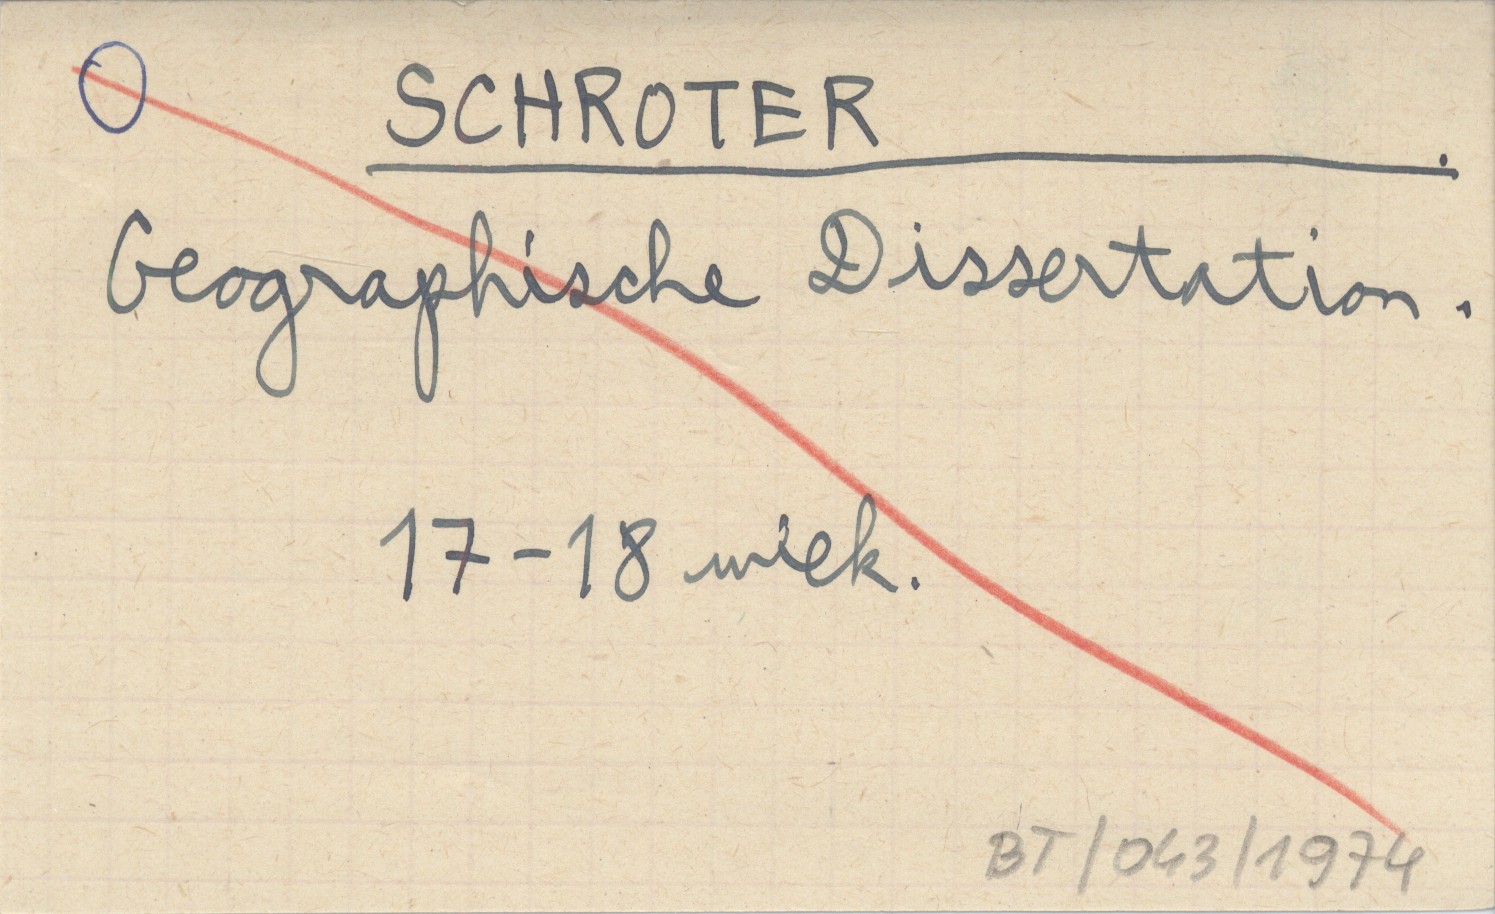 SCHROTER
Geographische Dissertation.
17-18 wiek.
BT/043/1974